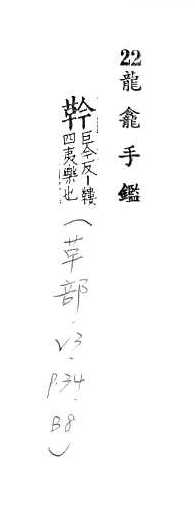 22龍龕手鑑
靲巨今反丨鞻
四夷樂也
(革部.V3.P.34.B8)